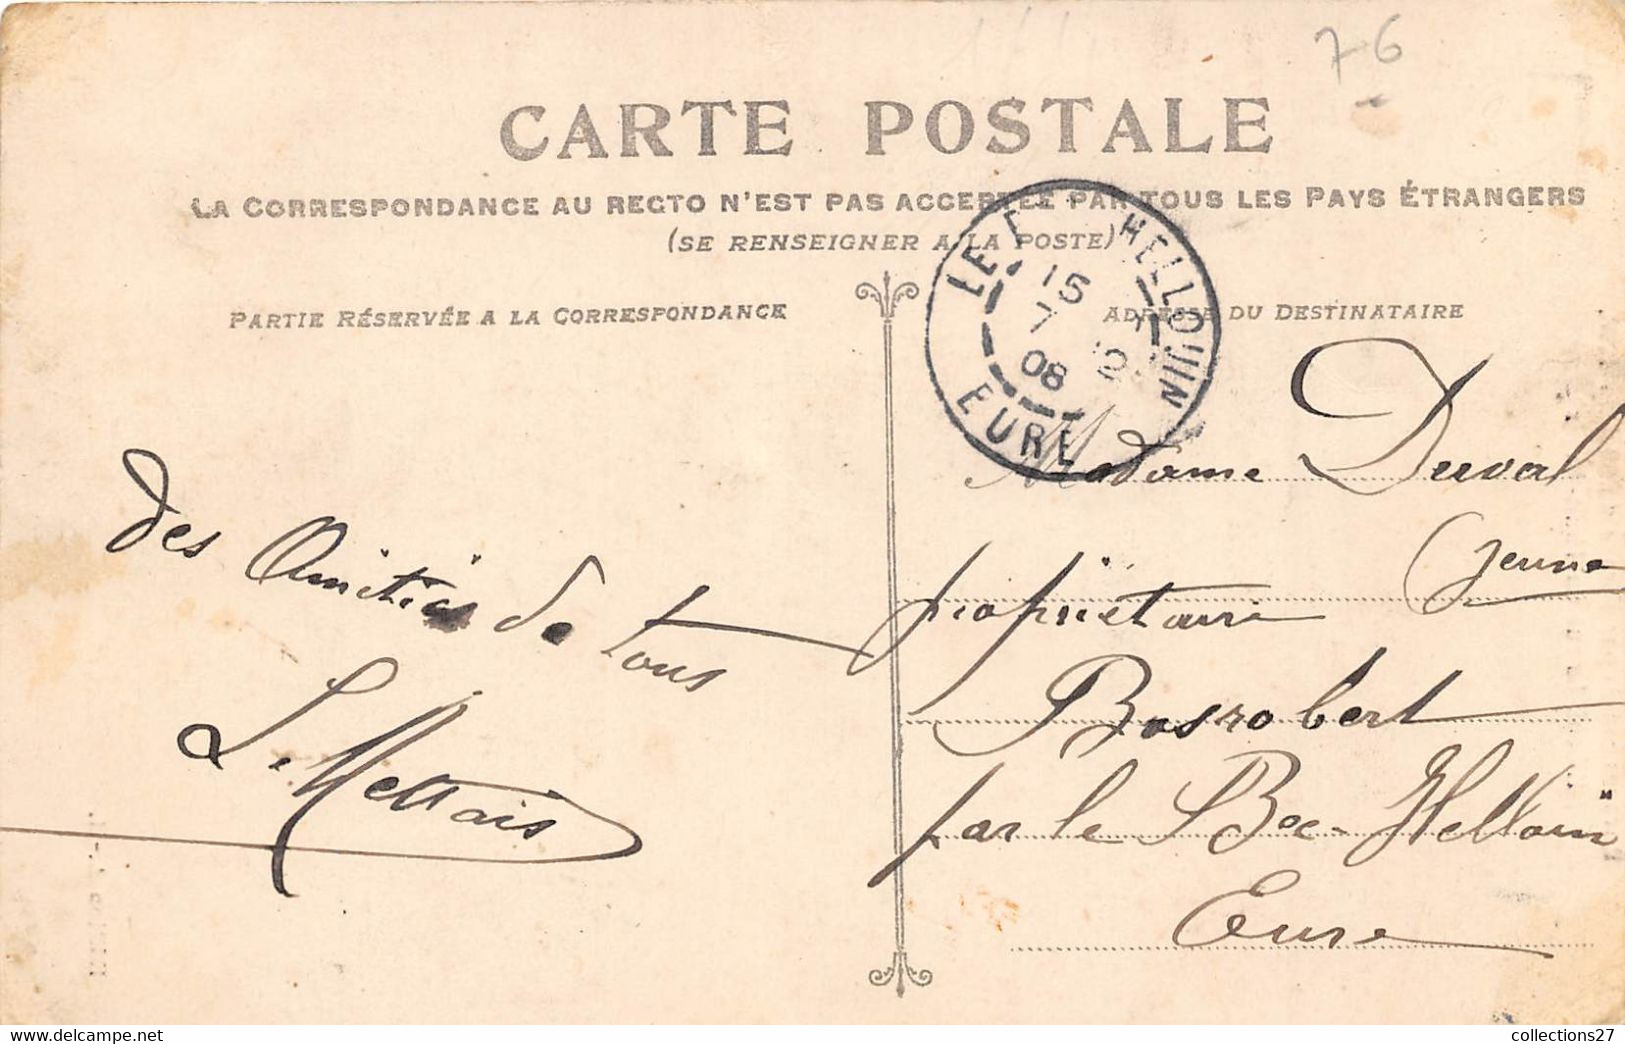 76
CARTE POSTALE
LA CORRESPONDANCE AU RECTO N'EST PAS ACCEPTÉE PAR TOUS LES PAYS ÉTRANGERS
(SE RENSEIGNER A LA POSTE)
PARTIE RÉSERVÉE A LA CORRESPONDANCE
ADRESSE DU DESTINATAIRE
LE HELLOUIN
15
7
08
EURE
des Amitiés de tous
Madame Duval
jeune
propriétaire
Bosrobert
par le Bec-Hellouin
Eure
collections27